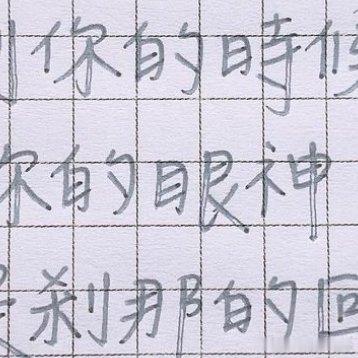 你的時候
你的眼神
剎那的回